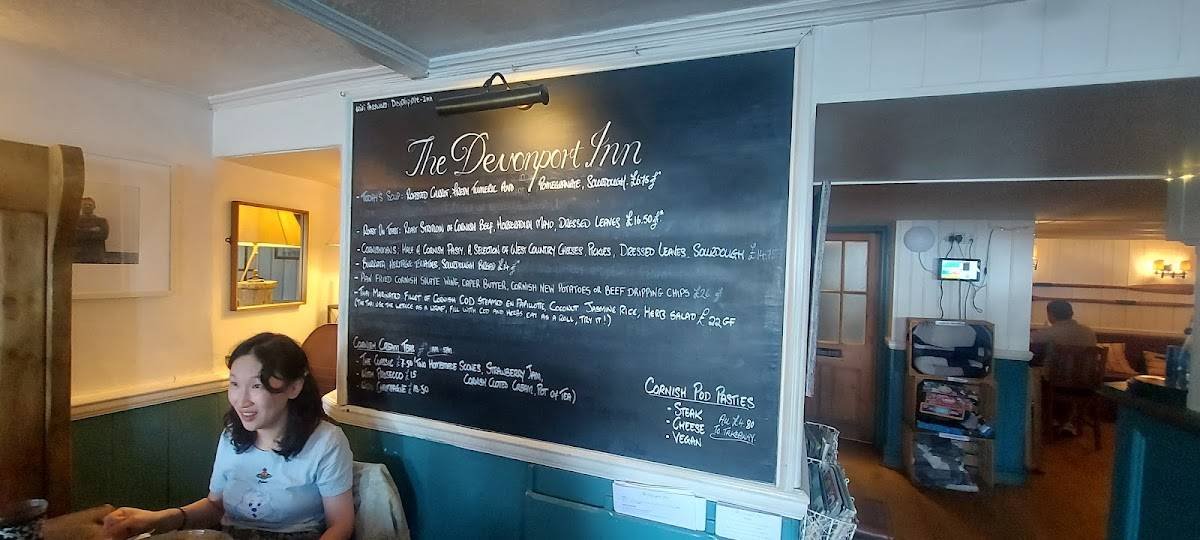 WiFi Password: Devonport-Inn
The Devonport Inn
- Today's Soup: Roasted Carrot, Fresh Tumeric And Pomegranate, Sourdough. £6.75
- Roast On Toast: Roast Striploin of Cornish Beef, Horseradish Mayo, Dressed Leaves £16.50
- Cornishman's: Half A Cornish Pasty, A Selection of West Country Cheeses, Pickles, Dressed Leaves, Sourdough £14.75
- Burrata, Heritage Tomatoes, Sourdough Bread £14
- Pan Fried Cornish Skate Wing, Caper Butter, Cornish New Potatoes or Beef Dripping Chips £26 gf
- Thai Marinated Fillet of Cornish Cod Steamed en Papillote, Coconut Jasmine Rice, Herb Salad £22 GF
(The Thai use the lettuce as a wrap, fill with cod and herbs eat as a roll, try it!)
Cornish Cream Teas
- The Classic £7.50 (Two Homemade Scones, Strawberry Jam,
Cornish Clotted Cream, Pot of Tea)
- With Prosecco £15
- With Champagne £18.50
Cornish Pod Pasties
- Steak
- Cheese
- Vegan
All £4.80
To Takeaway